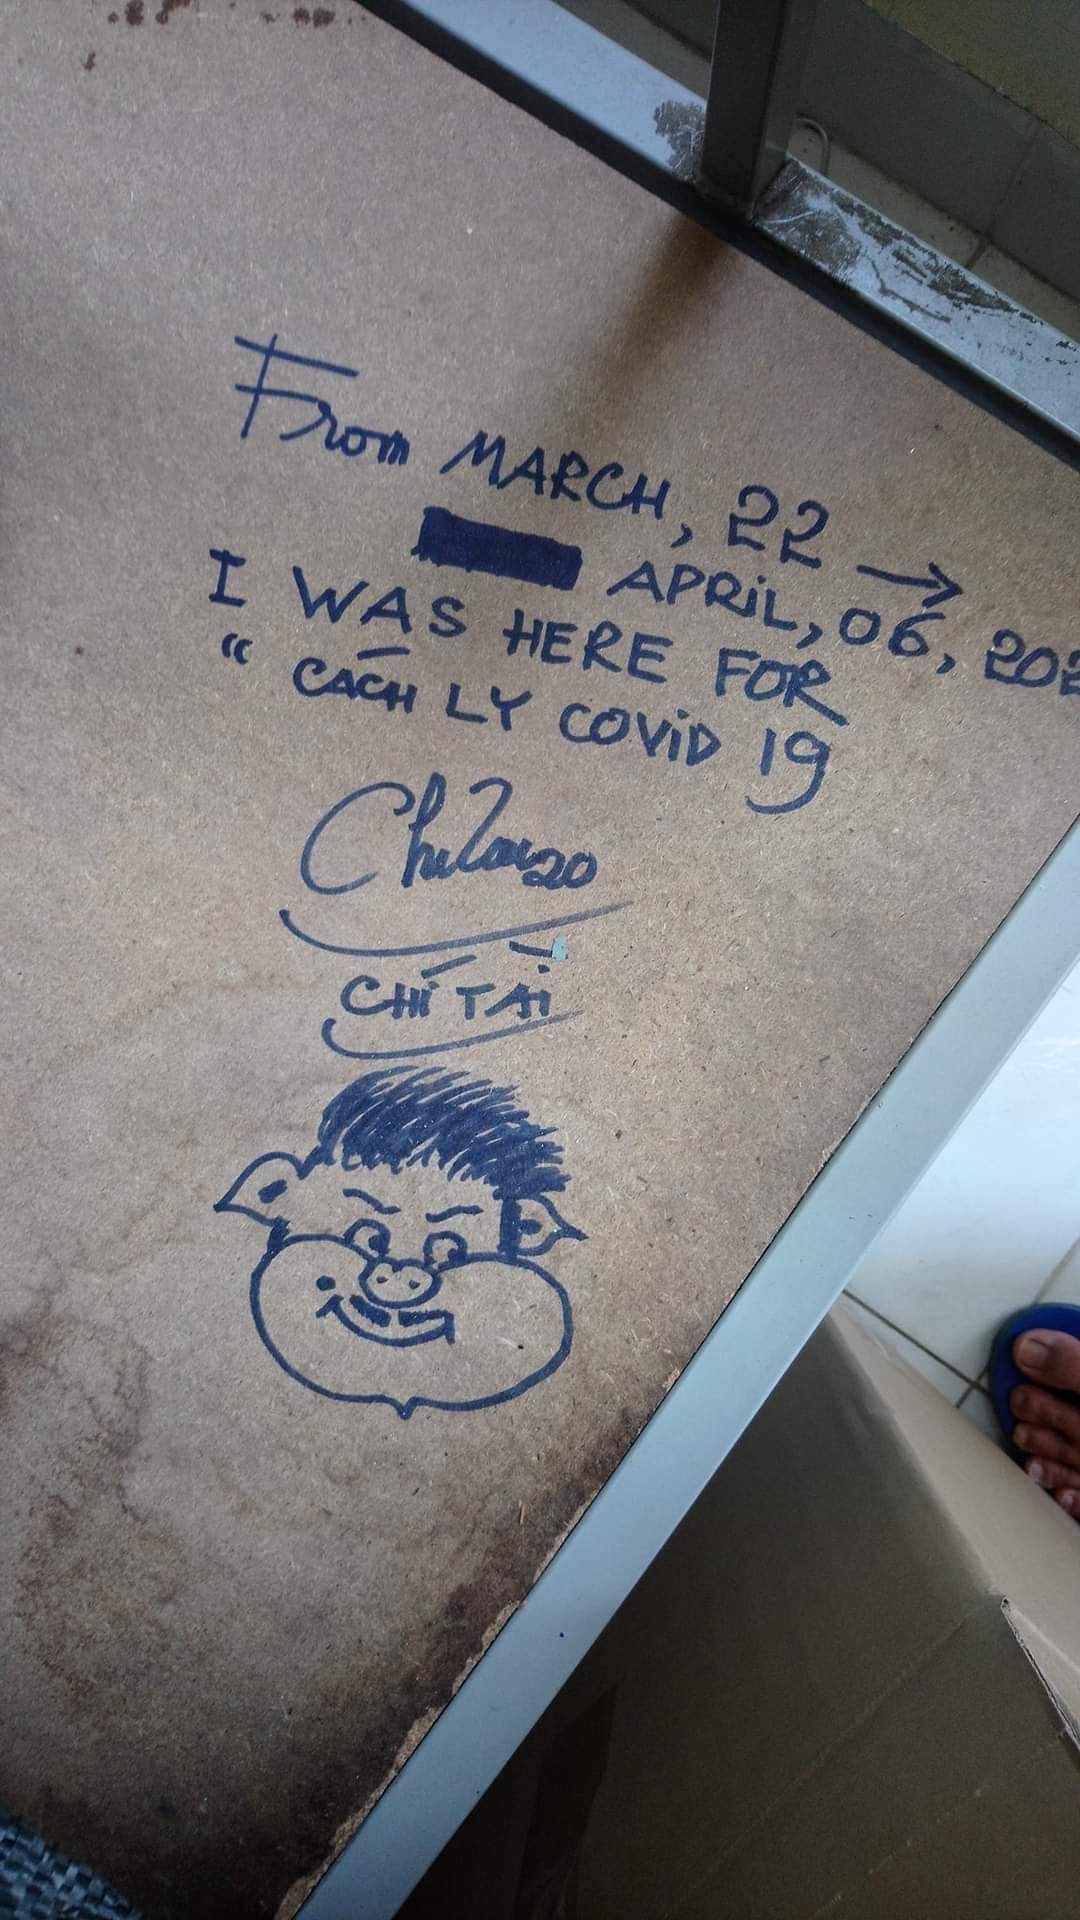 From MARCH, 22 →
APRiL, 06, 202
I WAS HERE FOR
“ CÁCH LY COViD 19
ChíTài20
CHÍ TÀI